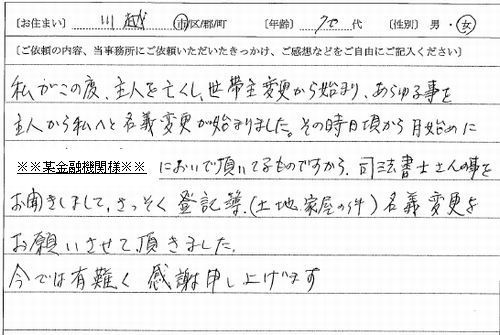 〔お住まい〕 川越 市/区/郡/町 〔年齢〕 70代 〔性別〕 男・女
〔ご依頼の内容、当事務所にご依頼いただいたきっかけ、ご感想などをご自由にご記入ください〕
私がこの度、主人を亡くし、世帯主変更から始まり、あらゆる事を
主人から私へと名義変更が始まりました。その時日頃から月始めに
※※某金融機関様※※ においで頂いてるものですから、司法書士さんの事を
お聞きしまして、さっそく登記簿、(土地、家屋の件)名義変更を
お願いさせて頂きました。
今では有難く感謝申し上げます